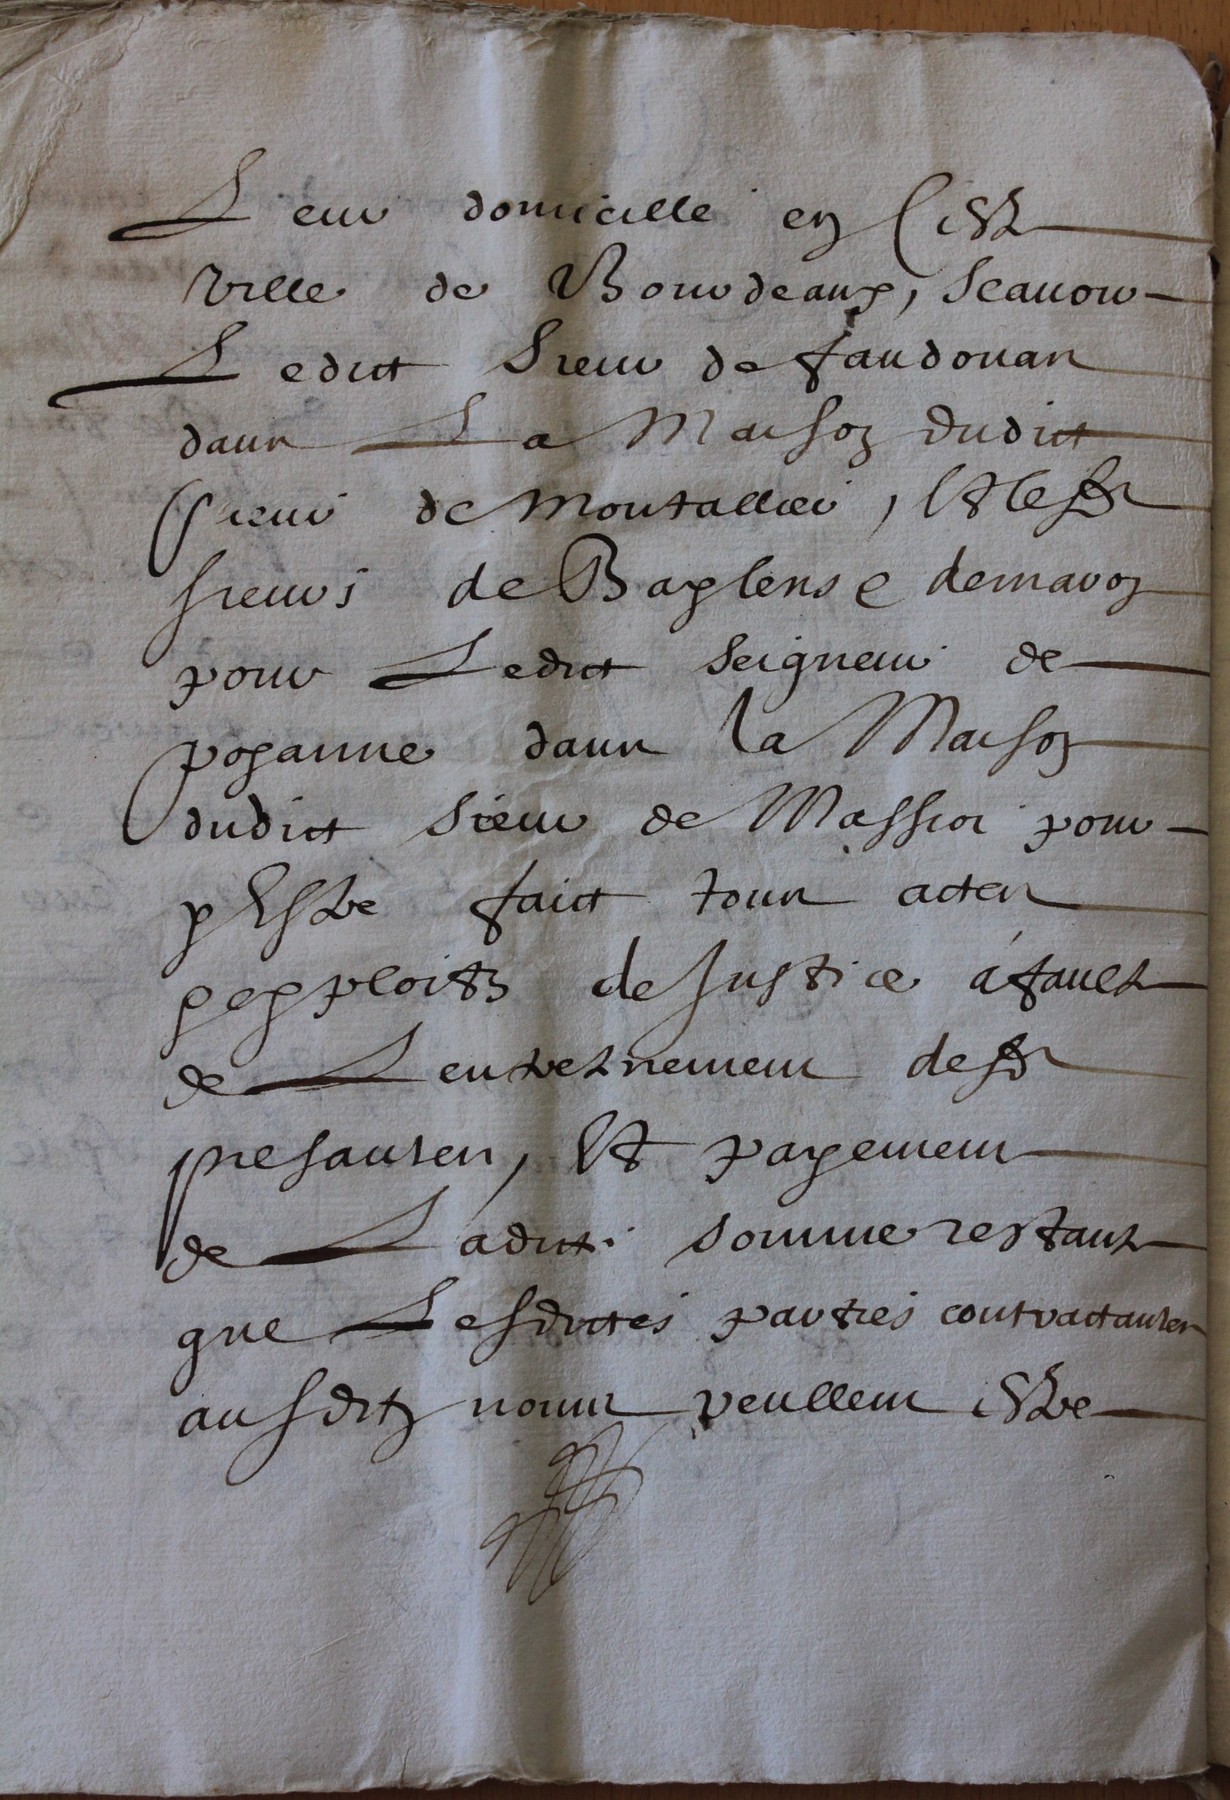 Leur domicille en ceste
ville de Bourdeaux, scauoir
Ledict Sieur de faudouas
dans La Maison dudict
sieur de Montallier, Et lesd
sieurs de Baylens e demaron
pour Ledict seigneur de
poyanne dans la Maison
dudict sieur de Massiot pour
y Estre faict tous actes
y exploits de Justice a fault
de Lentretenement desd
presantes, Et payement
de Ladicte somme restant
que Lesdictes parties contractantes
ausditz noms veullent estre